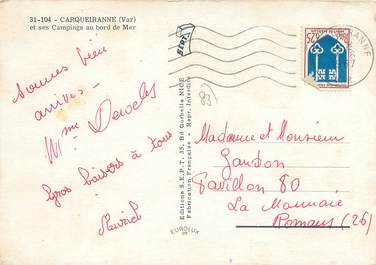 31-104 - CARQUEIRANNE (Var)
et ses Campings au bord de Mer
Sommes bien
arrivés -
Mme Derocles
Gros baisers à tous
Editions S.E.P.T. 35, Bd Gorbella NICE
Fabrication Française - Repr. Interdite
EUROLUX
Madame et Monsieur
Pavillon 80
La Monnaie
Romans (26)